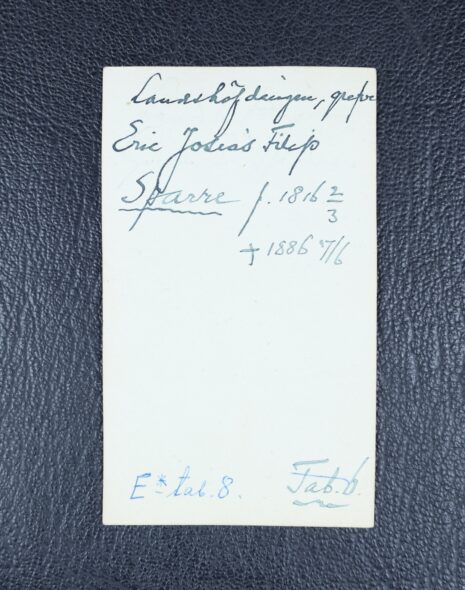 Landshöfdingen, grefve
Eric Josias Filip
Sparre f. 1816 2/3
† 1886 7/6
E* tab. 8. Tab. 6.